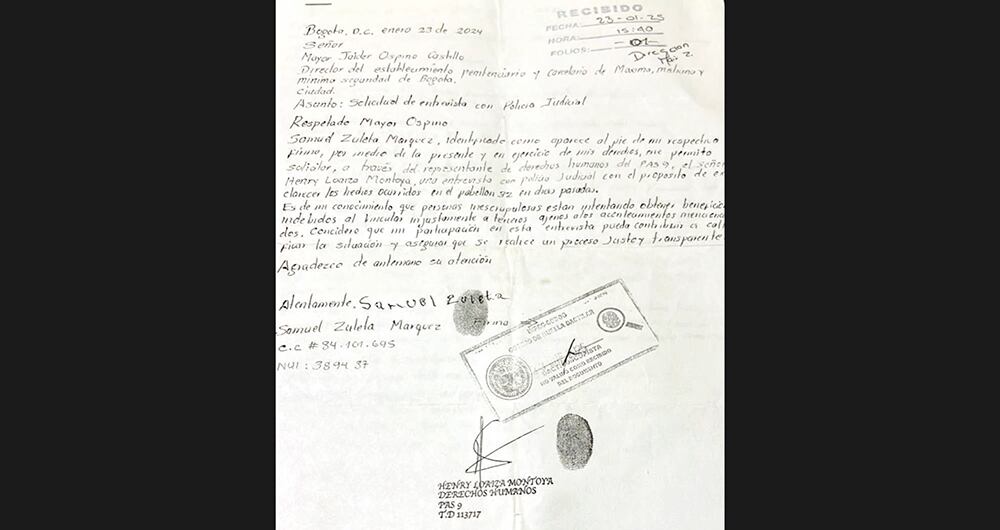 RECIBIDO
FECHA: 23-01-25
HORA: 15:40
FOLIOS: 01
Bogota, D.C. enero 23 de 2024
Señor
Mayor Jaider Ospino Castillo
Director del establecimiento penitenciario y carcelario de Maxima, mediana y
minima seguridad de Bogota.
Ciudad.
Asunto: Solicitud de entrevista con Policia Judicial
Respetado Mayor Ospino
Samuel Zuleta Marquez, identificado como aparece al pie de mi respectiva
firma, por medio de la presente y en ejercicio de mis derechos, me permito
solicitar, a través del representante de derechos humanos del PAS 9, el señor
Henry Loaiza Montoya, una entrevista con policia Judicial con el proposito de es
clarecer los hechos ocurridos en el pabellon en dias pasados.
Es de mi conocimiento que personas inescrupulosas estan intentando obtener beneficios
indebidos al vincular injustamente a terceros ajenos a los acontecimientos menciona
dos. Considero que mi participación en esta entrevista puede contribuir a
la situación y asegurar que se realice un proceso Justo y transparente
Agradezco de antemano su atención
Atentamente, Samuel Zuleta
Samuel Zuleta Marquez Firma
C.C # 84.101.695
NUI: 389437
CUERPO DE HUELLA DACTILAR
DACTILOSCOPISTA
NO VALIDO COMO RECIBIDO
DEL DOCUMENTO
HENRY LOAIZA MONTOYA
DERECHOS HUMANOS
PAS 9
T.D 113717